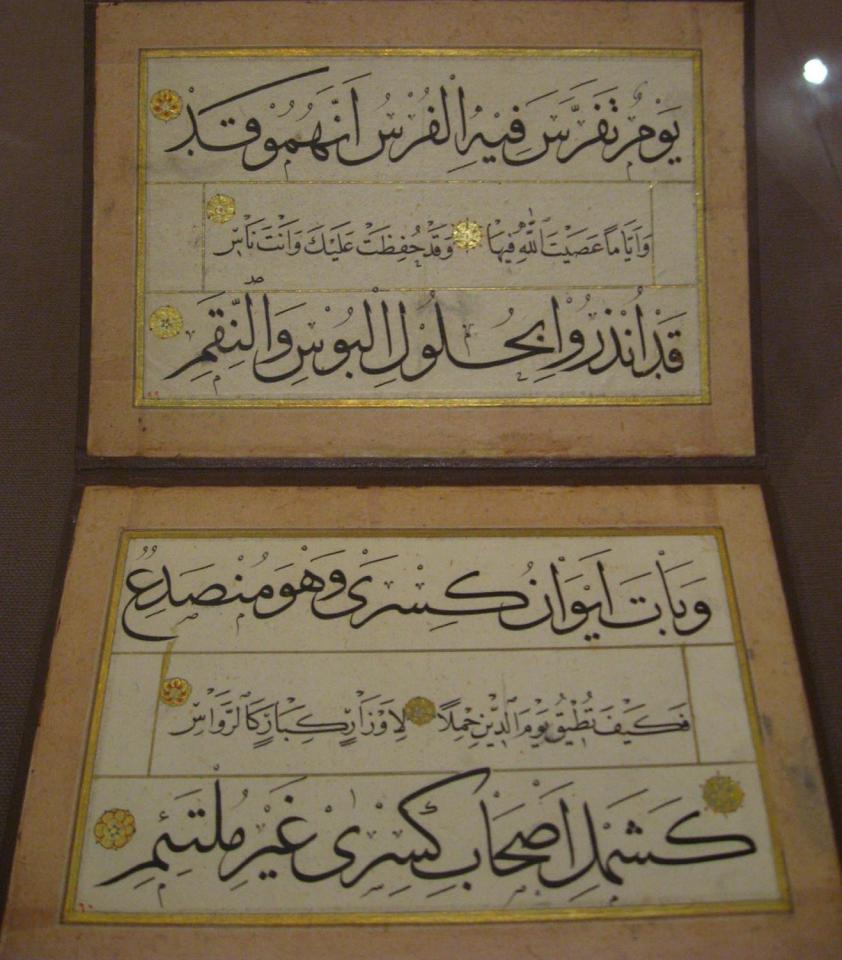 يَوْمٌ تَفَرَّسَ فِيْهِ الْفُرْسُ اَنَّهُمُو قَدْ
وَاَيَّامًا عَصَيْتَ اللّٰهَ فِيهَا وَقَدْ حُفِظَتْ عَلَيْكَ وَاَنْتَ نَاسِ
قَدْ اُنْذِرُوا بِحُلُولِ الْبُوْسِ وَالنِّقَمِ
٥٩
وَبَاتَ اَيْوَانُ كِسْرَى وَهْوَ مُنْصَدِعٌ
فَكَيْفَ تُطِيْقُ يَوْمَ الدِّيْنِ حِمْلًا لِاَوْزَارٍ كِبَارٍ كَالرَّوَاسِ
كَشَمْلِ اَصْحَابِ كِسْرٰى غَيْرِ مُلْتَئِمِ
٦٠